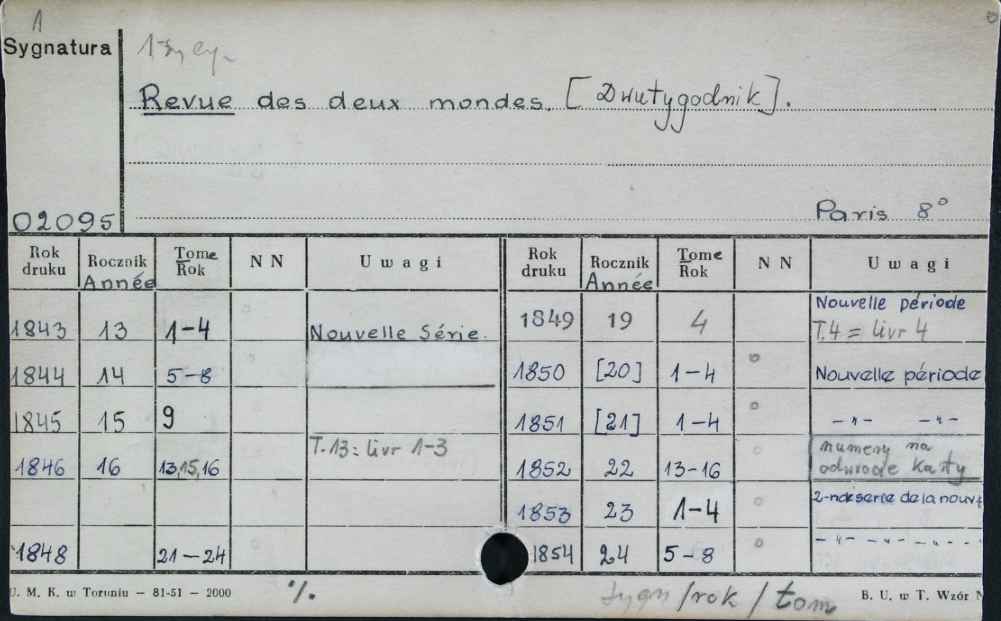 1
Sygnatura
Revue des deux mondes. [Dwutygodnik].
02095
Paris 8°
Rok druku Rocznik Année Tome Rok N N Uwagi Rok druku Rocznik Année Tome Rok N N Uwagi
1843 13 1-4 Nouvelle Série. 1849 19 4 Nouvelle période T.4 = livr 4
1844 14 5-8 1850 [20] 1-4 Nouvelle période
1845 15 9 1851 [21] 1-4 -"- -"-
1846 16 13,15,16 T.13: livr 1-3 1852 22 13-16 numery na odwrocie karty
1853 23 1-4 2-nde serie de la nouv
1848 21-24 1854 24 5-8 -"- -"- -"- -
U. M. K. w Toruniu - 81-51 - 2000 ·/. sygn/rok/tom B. U. w T. Wzór N